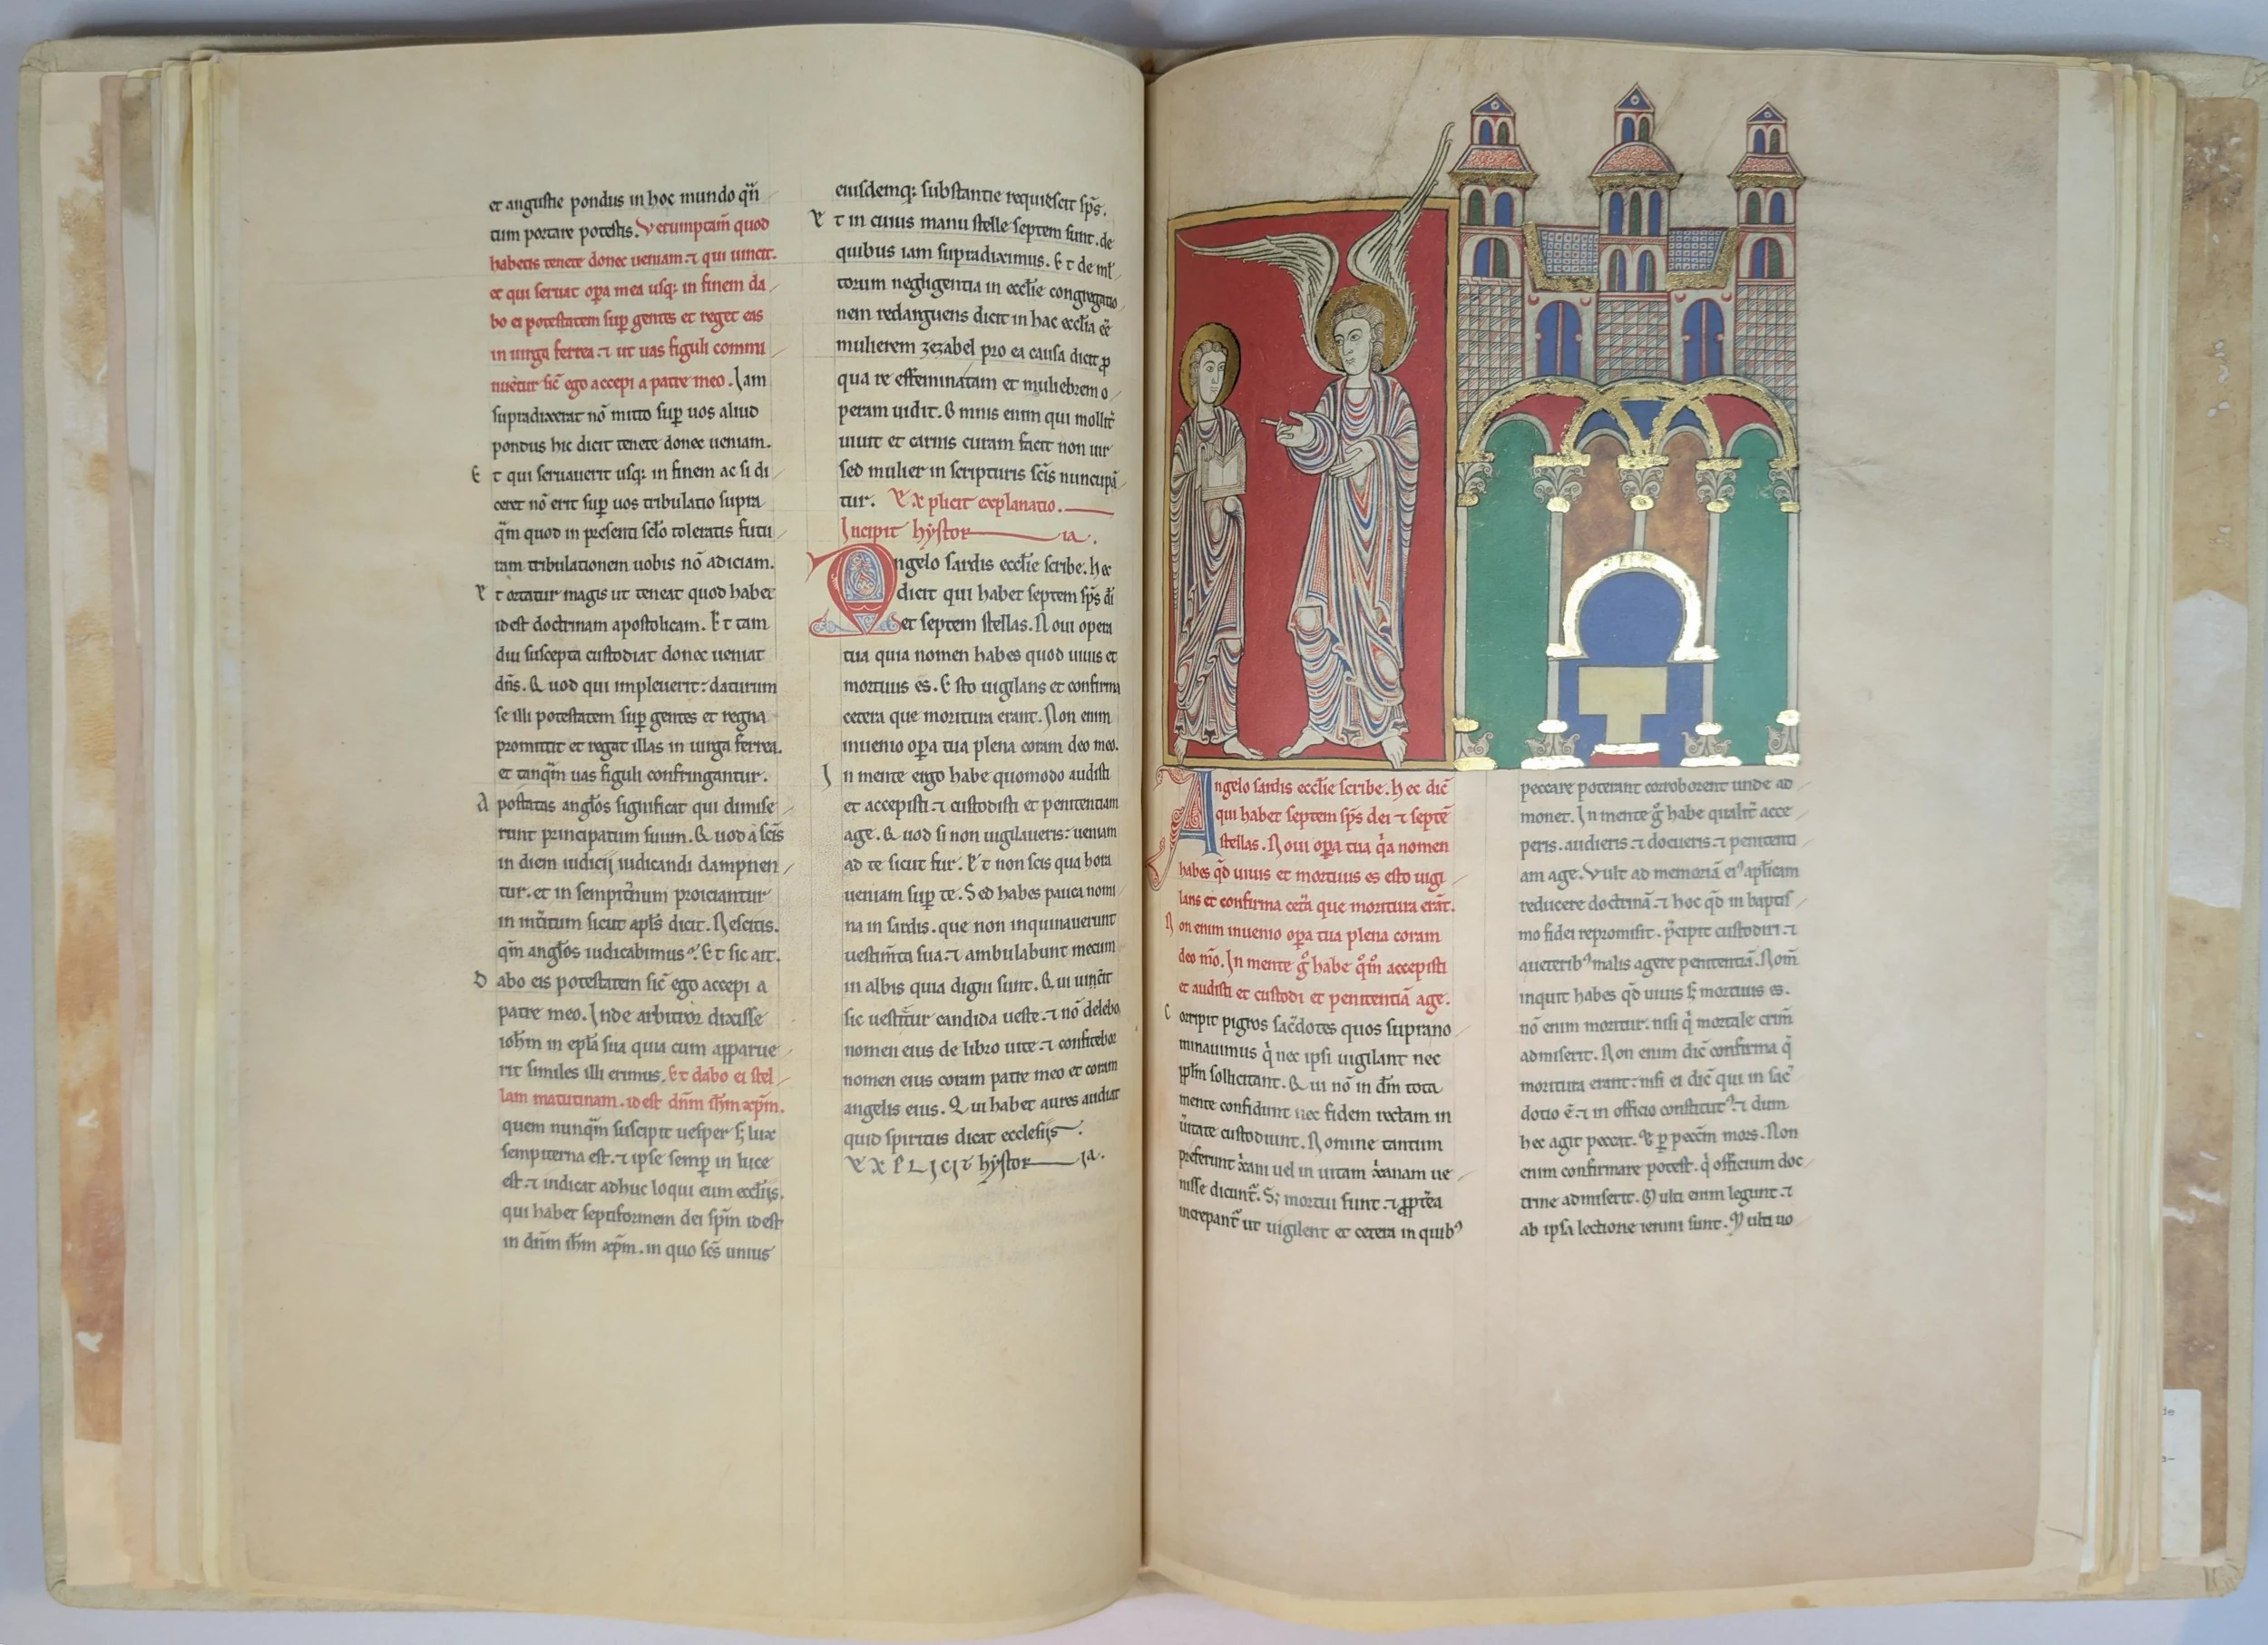 et angustie pondus in hoc mundo qñ
tum portare potestis. Verumptam̄ quod
habetis tenete donec ueniam. ⁊ qui uincit.
et qui seruat oꝑa mea usq; in finem da
bo ei potestatem suꝑ gentes et reget eas
in uirga ferrea. ⁊ ut uas figuli commi
nuetur sic̄ ego accepi a patre meo. Iam
supradixerat nō mitto suꝑ uos aliud
pondus hic dicit tenete donec ueniam.
Et qui seruauerit usq; in finem ac si di
ceret nō erit suꝑ uos tribulatio supra
qm̄ quod in presenti sc̄lo toleratis futu
ram tribulationem uobis nō adiciam.
Et ortatur magis ut teneat quod habet
idest doctrinam apostolicam. Et tam
diu suscepta custodiat donec ueniat
dn̄s. Quod qui impleuerit: daturum
se illi potestatem suꝑ gentes et regna
promittit et regat illas in uirga ferrea.
et tanqm̄ uas figuli confringantur.
Apostatas angl̄os significat qui dimise
runt principatum suum. Quod a sc̄is
in diem iudicij iudicandi dampnen
tur. et in sempit̄num proiciantur
in int̄itum sicut apl̄s dicit. Nescitis.
qm̄ angl̄os iudicabimus? Et sic ait.
Dabo eis potestatem sic̄ ego accepi a
patre meo. Inde arbitror dixisse
ioh̄m in epl̄a sua quia cum apparue
rit similes illi erimus. Et dabo ei stel
lam matutinam. idest dn̄m ih̄m xp̄m.
quem nunqm̄ suscipit uesper s; lux
sempiterna est. ⁊ ipse semꝑ in luce
est. ⁊ indicat adhuc loqui eum eccl̄ijs.
qui habet septiformem dei sp̄m idest
in dn̄m ih̄m xp̄m. in quo sc̄s unius
eiusdemq; substantie requiescit sp̄s.
Et in cuius manu stelle septem sunt. de
quibus iam supradiximus. Et de ml̄
torum negligentia in eccl̄ie congregatio
nem redarguens dicit in hac eccl̄ia eē
mulierem zezabel pro ea causa dicit ꝓ
qua re effeminatam et muliebrem o
peram uidit. Omnis enim qui mollit̄
uiuit et carnis curam facit non uir
sed mulier in scripturis sc̄is nuncupa
tur. Explicit explanatio.
Incipit hystoria.
Angelo sardis eccl̄ie scribe. hec
dicit qui habet septem sp̄s dī
et septem stellas. Noui opera
tua quia nomen habes quod uiuis et
mortuus es. Esto uigilans et confirma
cetera que moritura erant. Non enim
inuenio oꝑa tua plena coram deo meo.
In mente ergo habe quomodo audisti
et accepisti. ⁊ custodisti et penitentiam
age. Quod si non uigilaueris: ueniam
ad te sicut fur. Et non scis qua hora
ueniam suꝑ te. Sed habes pauca nomi
na in sardis. que non inquinauerunt
uestim̄ta sua. ⁊ ambulabunt mecum
in albis quia digni sunt. Qui uinc̄it
sic uestit̄ur candida ueste. ⁊ nō delebo
nomen eius de libro uite. ⁊ confitebor
nomen eius coram patre meo et coram
angelis eius. Qui habet aures audiat
quid spiritus dicat ecclesijs.
EXPLICIT hystoria.
Angelo sardis eccl̄ie scribe. hec dic̄
qui habet septem sp̄s dei ⁊ septē
stellas. Noui oꝑa tua q̇a nomen
habes qd̄ uiuis et mortuus es esto uigi
lans et confirma cet̄a que moritura erāt.
Non enim inuenio oꝑa tua plena coram
deo m̄o. In mente g̊ habe q̊m̄ accepisti
et audisti et custodi et penitentiā age.
Corripit pigros sac̄dotes quos suprano
minauimus q̇ nec ipsi uigilant nec
pp̄lm sollicitant. Qui nō in dm̄ tota
mente confidunt nec fidem rectam in
ūitate custodiunt. Nomine tantum
preferunt xānam uel in uitam xānam ue
nisse dicunt̄. S; mortui sunt. ⁊ ꝓptēa
increpant̄ ut uigilent et cetera in quibꝰ
peccare poterant corroborent unde ad
monet. In mente g̊ habe qualit̄ acce
peris. audieris. ⁊ docueris. ⁊ penitenti
am age. Vult ad memoriā eiꝰ apl̄icam
reducere doctrinā. ⁊ hoc qd̄ in baptis
mo fidei repromisit. p̄cipit custodiri. ⁊
a ueteribꝰ malis agere penitentiā. Nom̄
inquit habes qd̄ uiuis s; mortuus es.
nō enim moritur. nisi q̇ mortale crim̄
admiserit. Non enim dic̄ confirma q̇
moritura erant: nisi ei dic̄ qui in sac̄
dotio ē. ⁊ in officio constitutꝰ. ⁊ dum
hec agit peccat. Et ꝑ pecc̄m mors. Non
enim confirmare potest. q̇ officium doc
trine admiserit. Multi enim legunt. ⁊
ab ipsa lectione ieiuni sunt. Multi uo